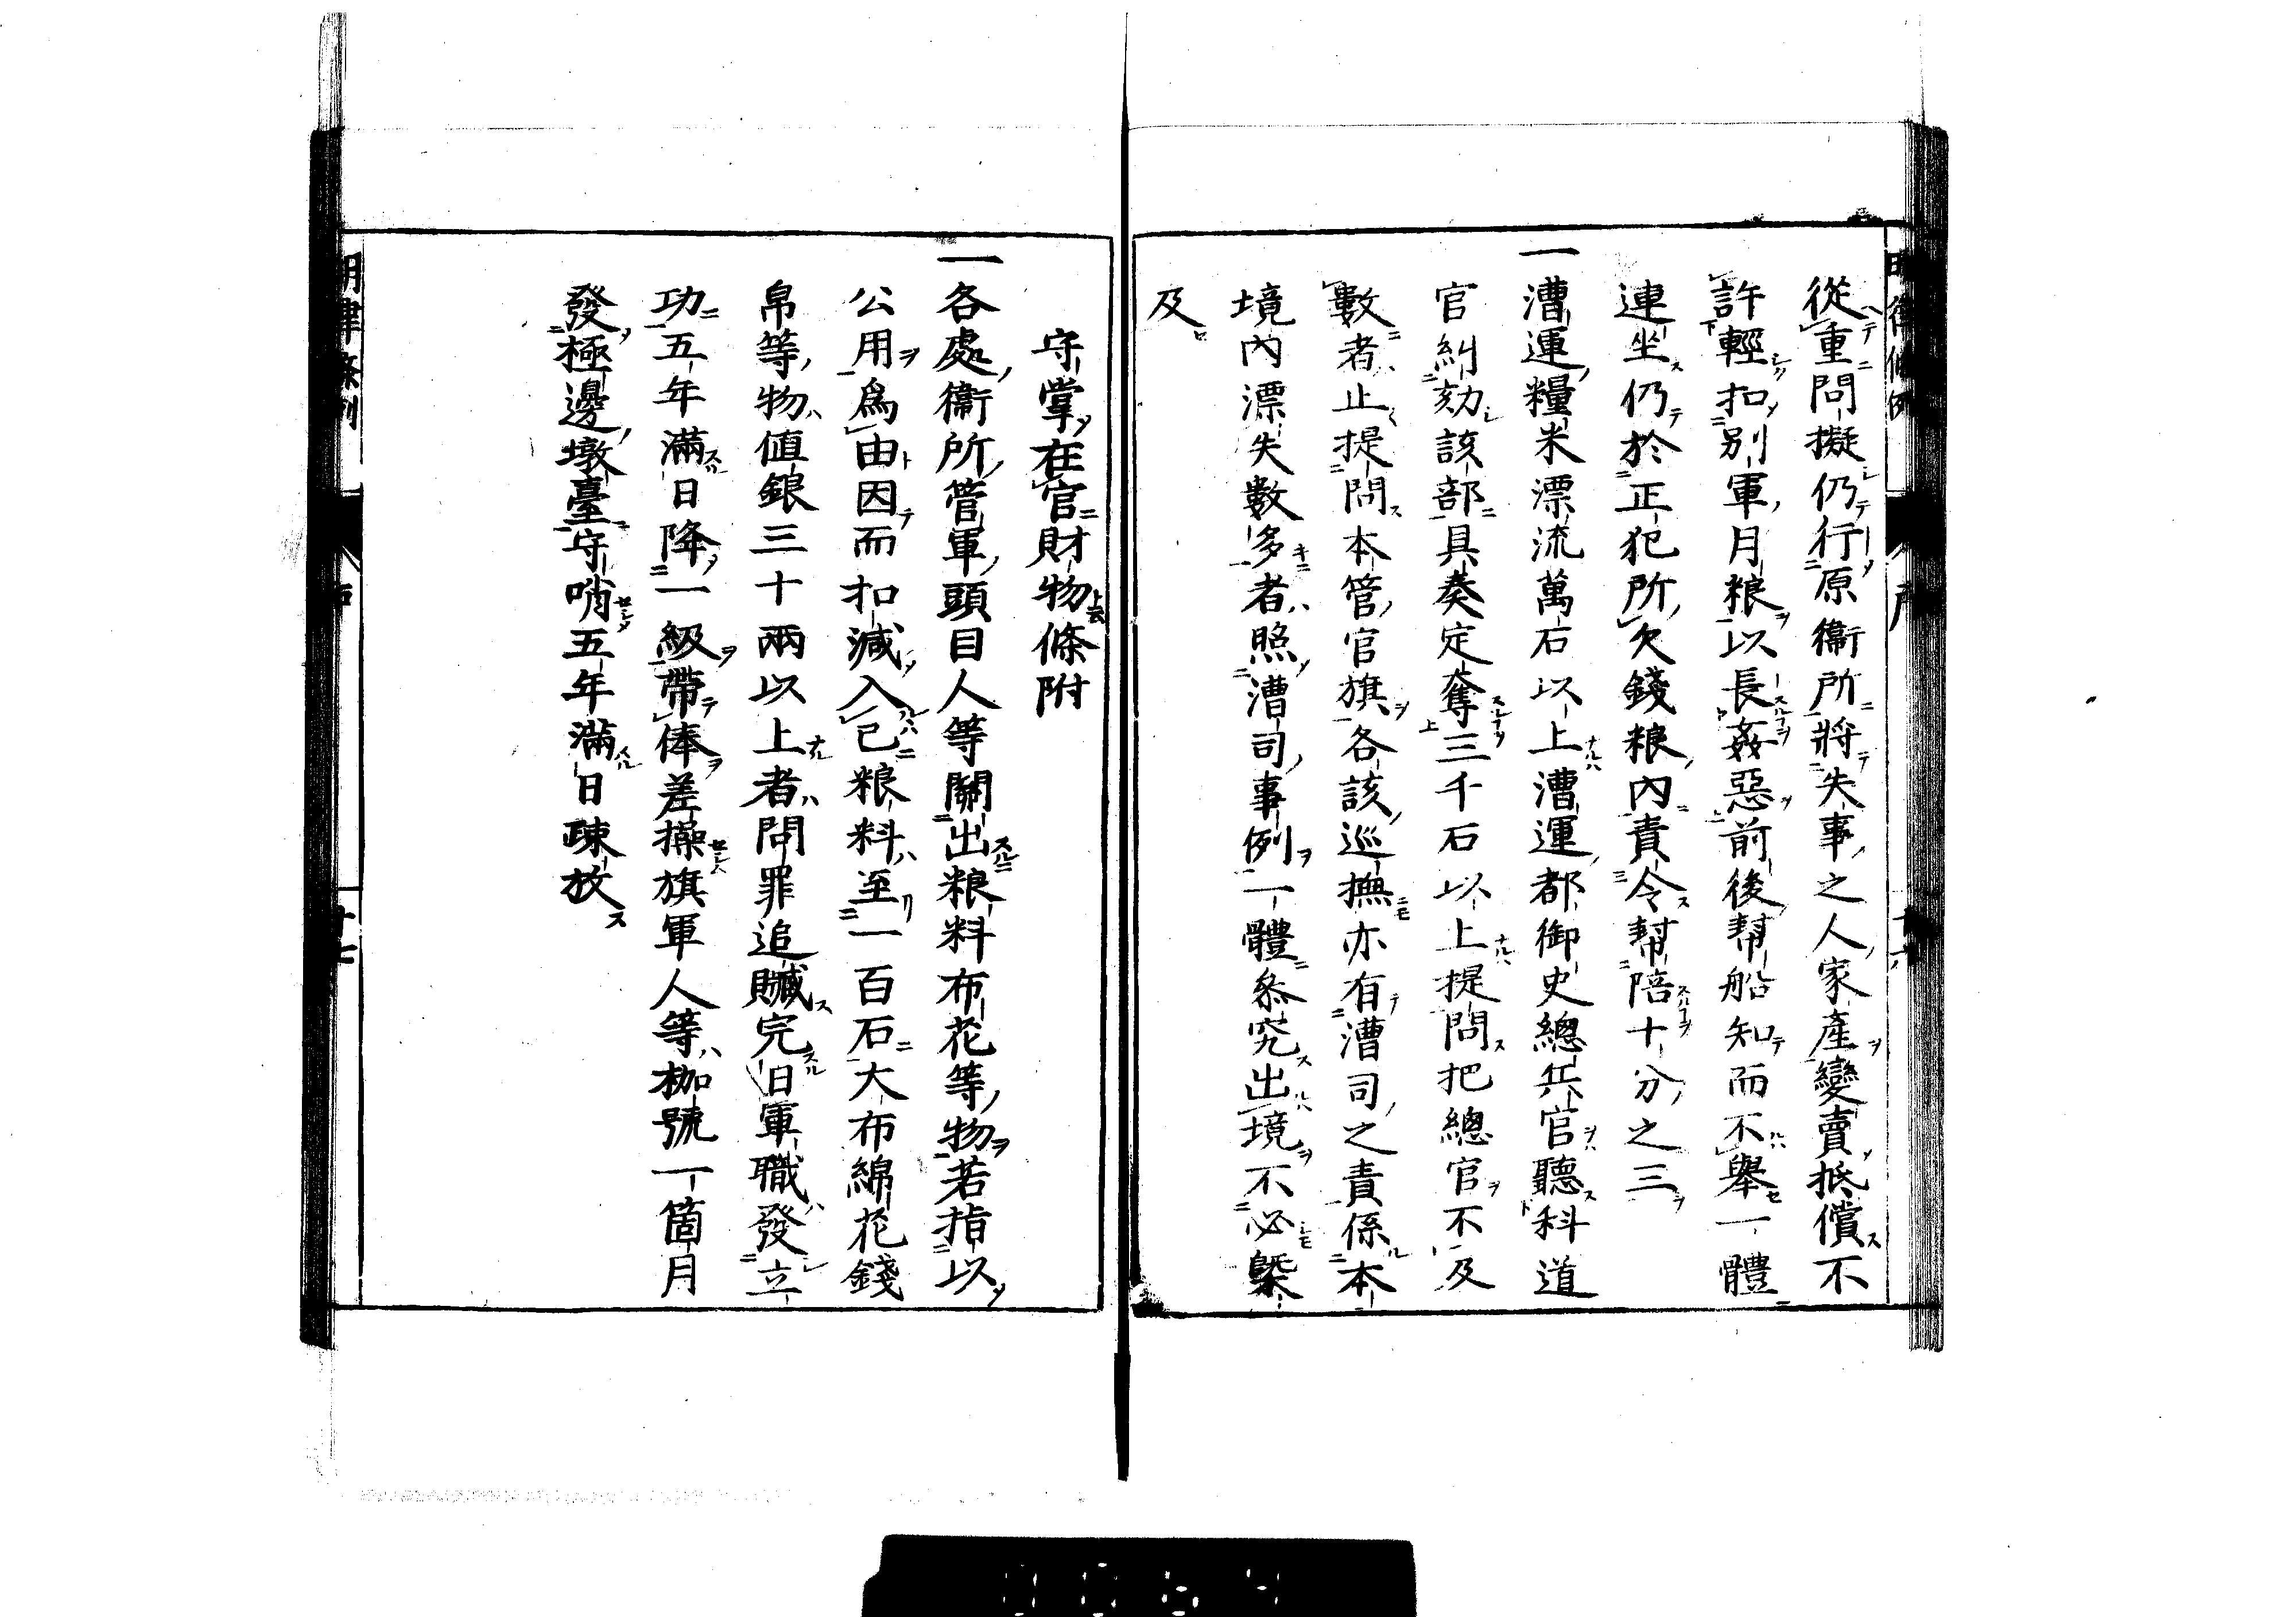 從重問擬仍行原衞所將失事之人家產變賣抵償不
許輕扣別軍月粮以長姦惡前後幇船知而不舉一體
連坐仍於正犯所欠錢粮內責令幇陪十分之三
一漕運糧米漂流萬石以上漕運都御史總兵官聽科道
官糾劾該部具奏定奪三千石以上提問把總官不及
數者止提問本管官旗各該巡撫亦有漕司之責係本
境內漂失數多者照漕司事例一體叅究出境不必槩
及
守掌在官財物條附
一各處衞所管軍頭目人等關出粮料布花等物若指以
公用爲由因而扣減入己粮料至一百石大布綿花錢
帛等物値銀三十兩以上者問罪追贓完日軍職發立
功五年滿日降一級帶俸差操旗軍人等枷號一箇月
發極邊墩臺守哨五年滿日踈放
明律條例
十七